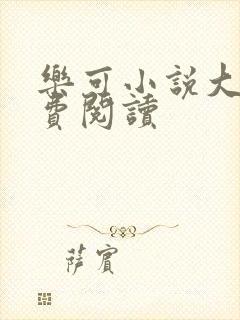 樂可小説大
費閱讀
薩賓